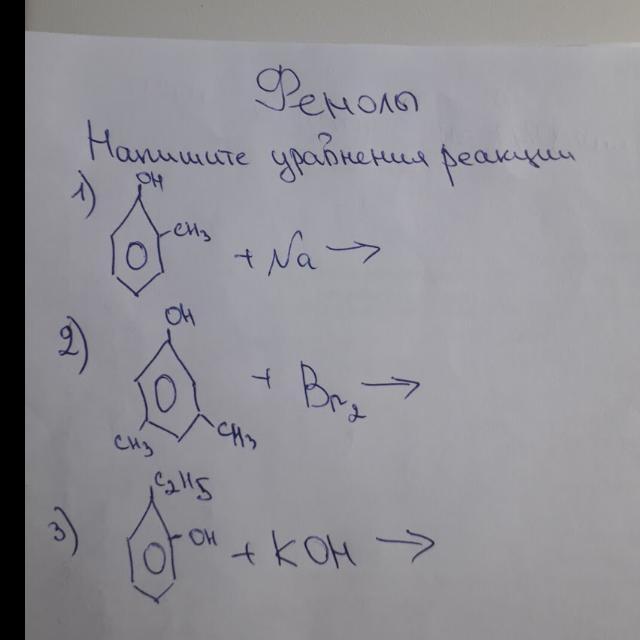 Фенолы
Напишите уравнения реакции
1)
OH
CH3
+ Na →
2)
OH
+ Br2 →
CH3
CH3
3)
C2H5
OH
+ KOH →